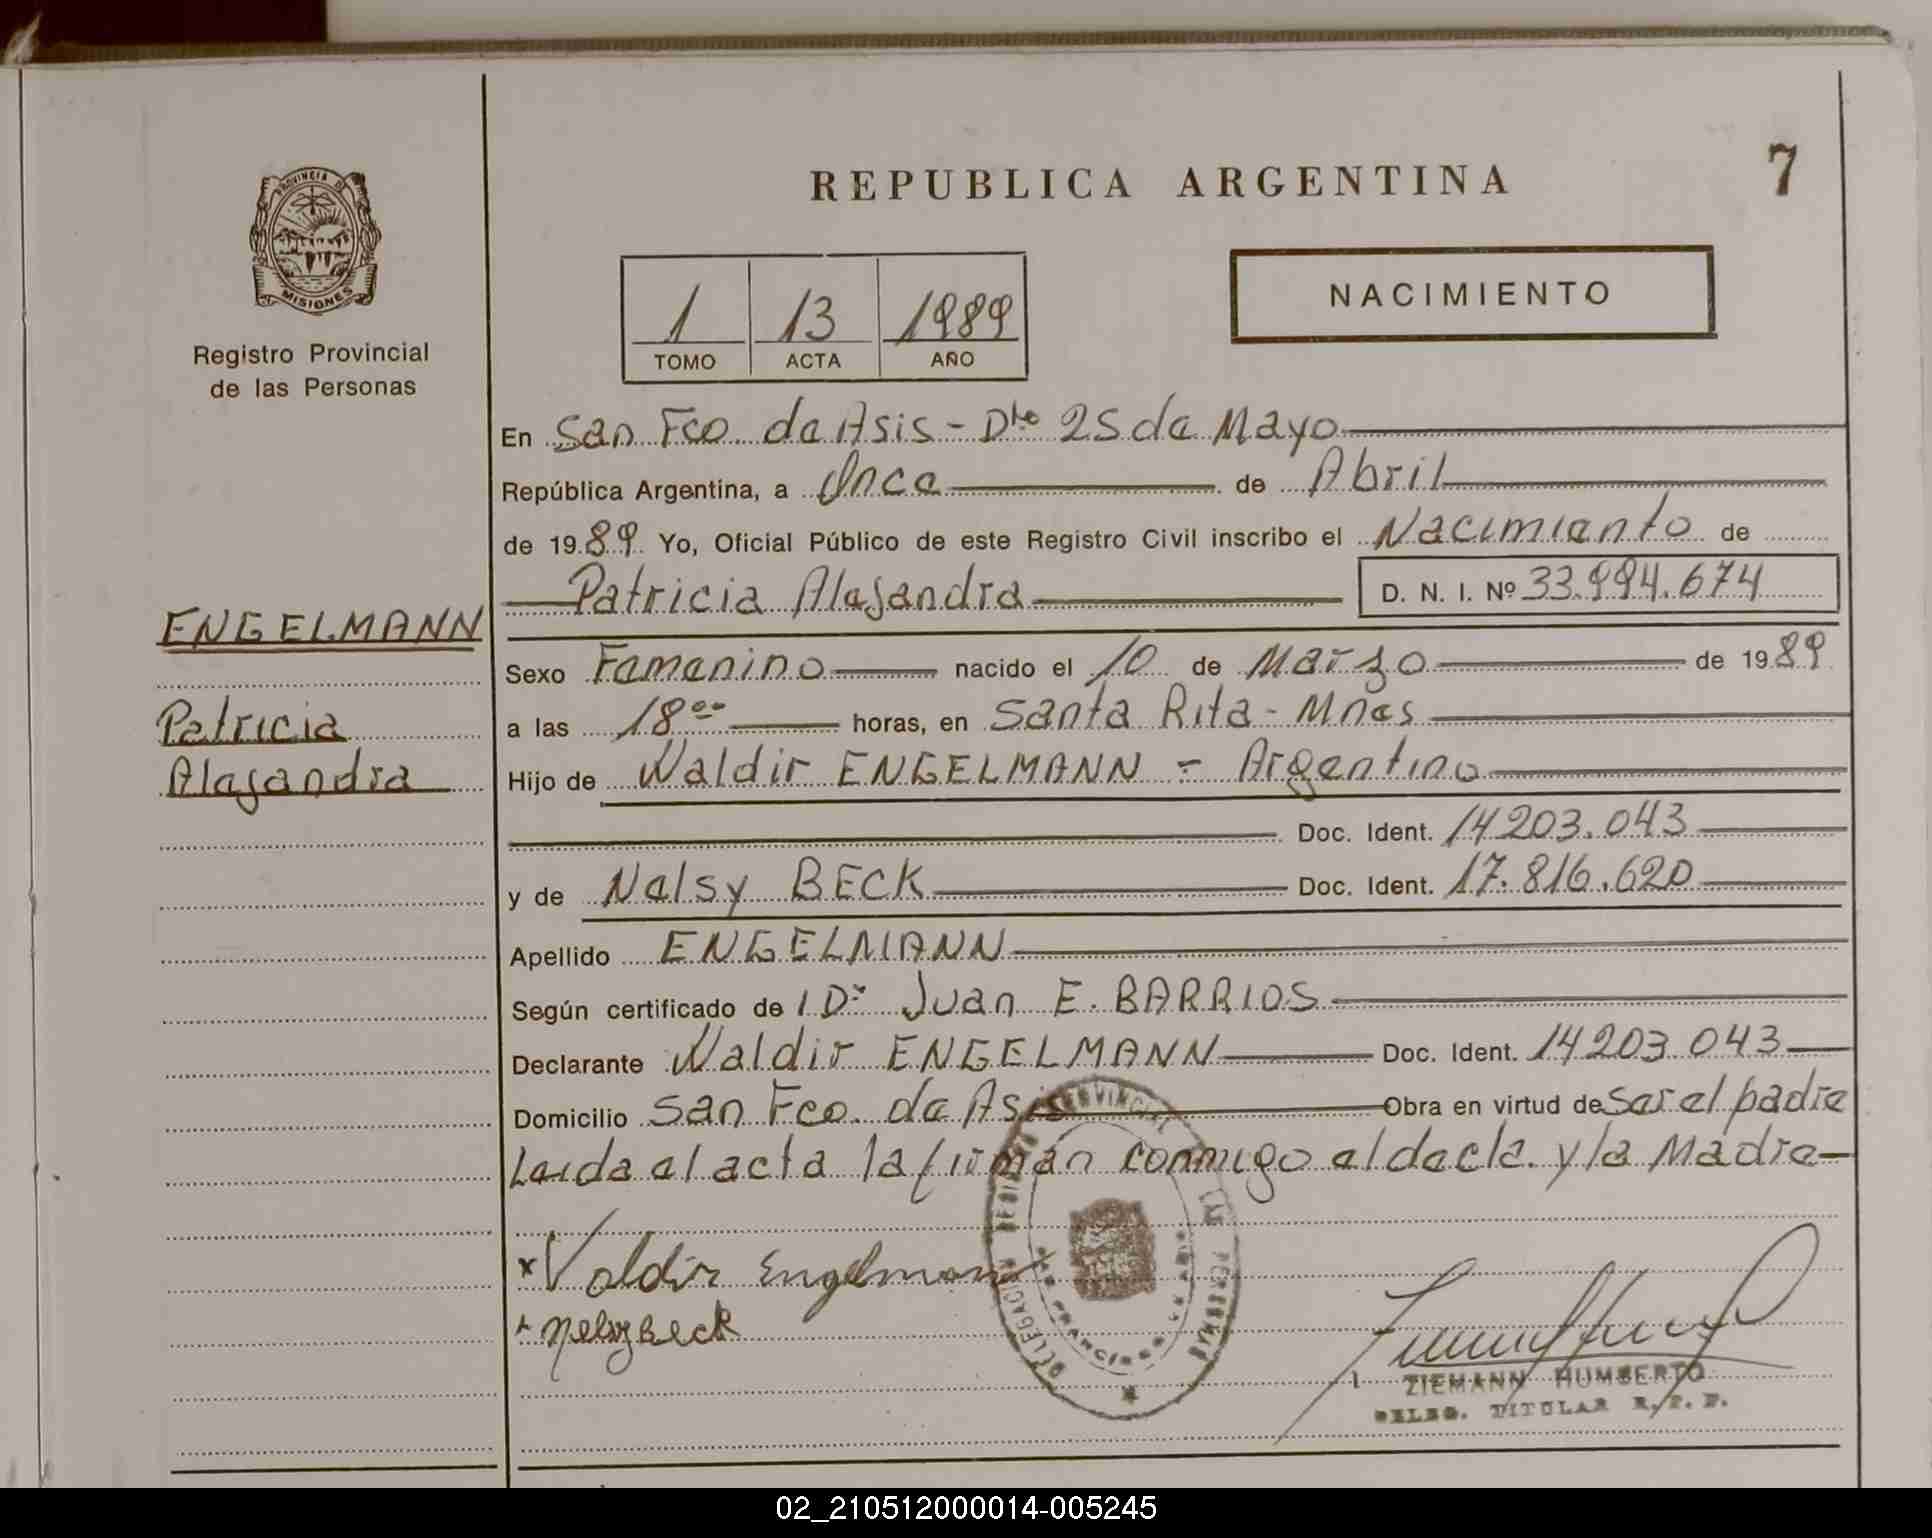 7
REPUBLICA ARGENTINA
PROVINCIA DE
MISIONES
Registro Provincial
de las Personas
NACIMIENTO
1 13 1989
TOMO ACTA AÑO
En San Fco de Asis - Dto 25 de Mayo
República Argentina, a Once de Abril
de 1989 Yo, Oficial Público de este Registro Civil inscribo el Nacimiento de
Patricia Alejandra D. N. I. Nº 33.994.674
ENGELMANN
Patricia
Alejandra
Sexo Femenino nacido el 10 de Marzo de 1989
a las 18 00 horas, en Santa Rita - Mnes
Hijo de Waldir ENGELMANN - Argentino
Doc. Ident. 14203.043
y de Nelsy BECK Doc. Ident. 17.816.620
Apellido ENGELMANN
Según certificado de 1 Dr Juan E. BARRIOS
Declarante Waldir ENGELMANN Doc. Ident. 14203043
Domicilio San Fco. de Asis Obra en virtud de ser el padre
Leida el acta la firman conmigo el decla. y la Madre
x Valdir Engelmann
x Nelsy Beck
DELEGACION REGISTRO PROVINCIAL DE LAS PERSONAS
SAN FRANCISCO DE ASIS
ZIEMANN HUMBERTO
DELEG. TITULAR R. P. P.
02_210512000014-005245